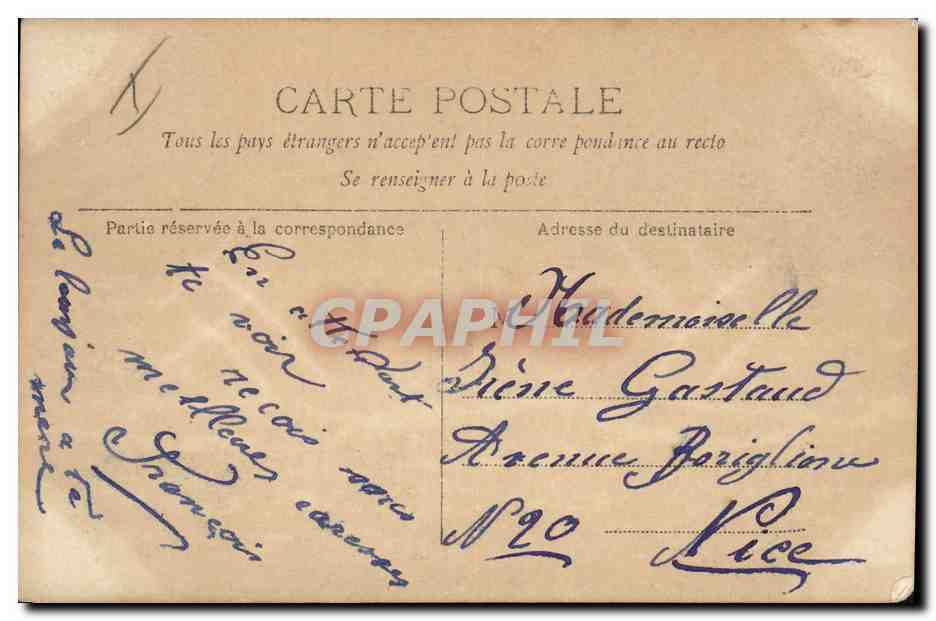 CARTE POSTALE
Tous les pays étrangers n'accep'ent pas la corre pondance au recto
Se renseigner à la poste
Partie réservée à la correspondance
Adresse du destinataire
En attendant
te voir
recois mes
meilleures caresses
François
a ta
mere
CPAPHIL
Mademoiselle
Irène Gastaud
Avenue Boriglione
N 20 Nice